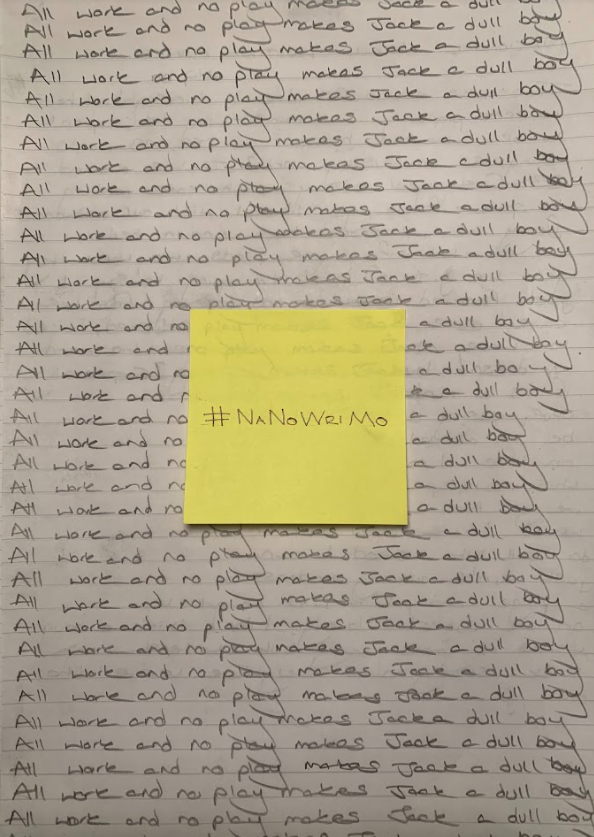 All work and no play makes Jack a dull boy
All work and no play makes Jack a dull boy
All work and no play makes Jack a dull boy
All work and no play makes Jack a dull boy
All work and no play makes Jack a dull boy
All work and no play makes Jack a dull boy
All work and no play makes Jack a dull boy
All work and no play makes Jack a dull boy
All work and no play makes Jack a dull boy
All work and no play makes Jack a dull boy
All work and no play makes Jack a dull boy
All work and no play makes Jack a dull boy
All work and no play makes Jack a dull boy
All work and no play makes Jack a dull boy
All work and no a dull boy
All work and a dull boy
All work and no a dull boy
All work and a dull boy
All work and no a dull boy
All work and no a dull boy
All work and no a dull boy
All work and no a dull boy
All work and no a dull boy
#NANOWRIMO
All work and no play makes Jack a dull boy
All work and no play makes Jack a dull boy
All work and no play makes Jack a dull boy
All work and no play makes Jack a dull boy
All work and no play makes Jack a dull boy
All work and no play makes Jack a dull boy
All work and no play makes Jack a dull boy
All work and no play makes Jack a dull boy
All work and no play makes Jack a dull boy
All work and no play makes Jack a dull boy
All work and no play makes Jack a dull boy
All work and no play makes Jack a dull boy
All work and no play makes Jack a dull boy